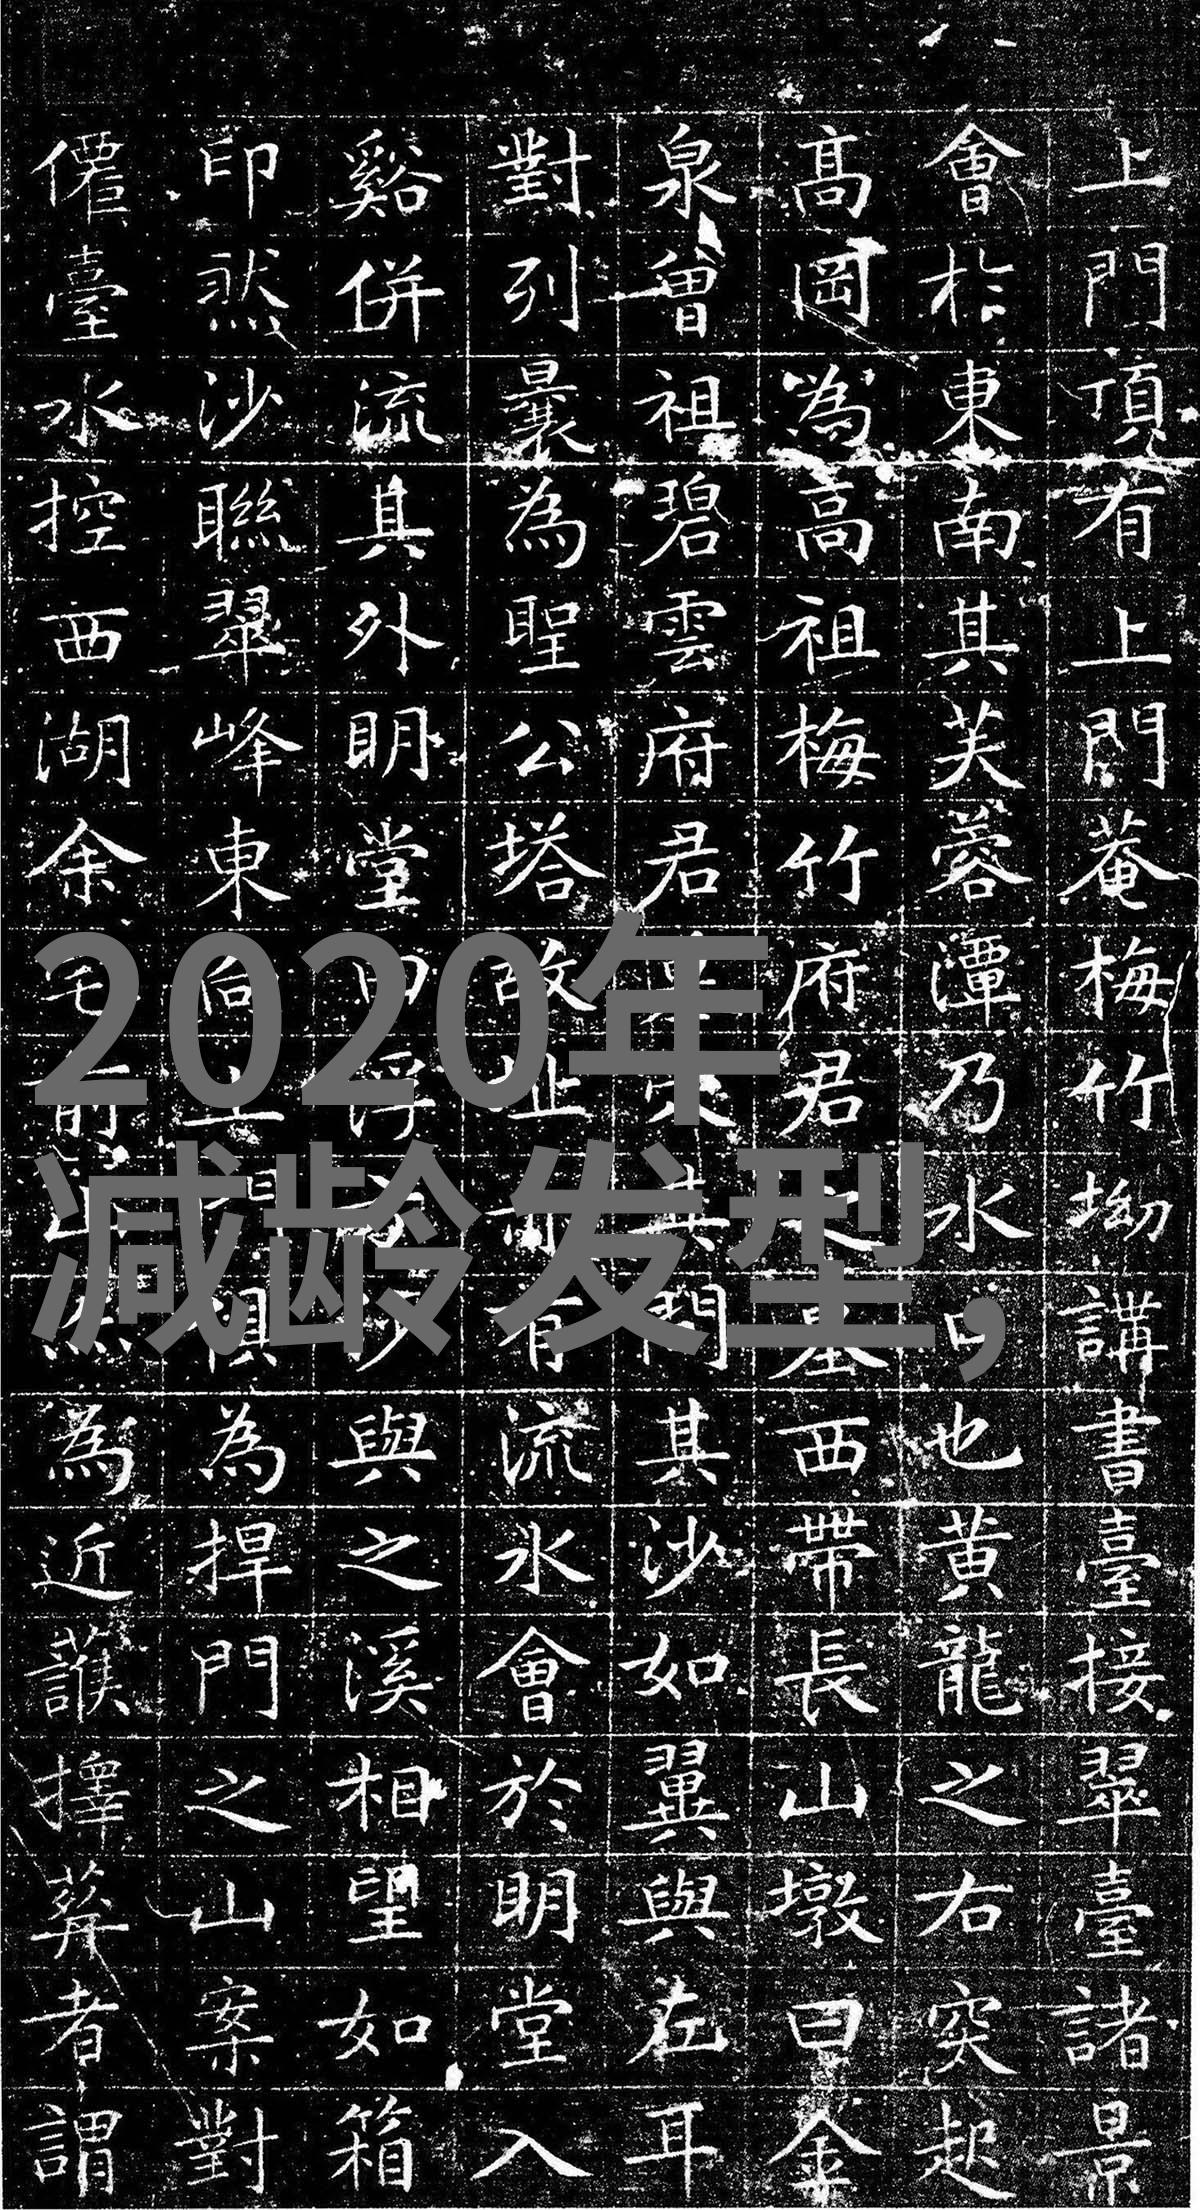 上門頂有上門菴梅竹坳講書臺接翠臺諸景
會於東南其芙蓉潭乃水口也黃龍之右突起
高岡為高祖梅竹府君之墓西帶長山墩曰金
泉曾祖碧雲府君其間其沙如翼與左耳
對列曩為聖公塔故址亦有流水會於明堂入
谿併流其外明堂浮沙與之溪相望如箱
印然沙聯翠峰東向上俱為捍門之山案對
僊臺水控西湖余宅前為近護擇葬者謂
2020年
减龄发型，